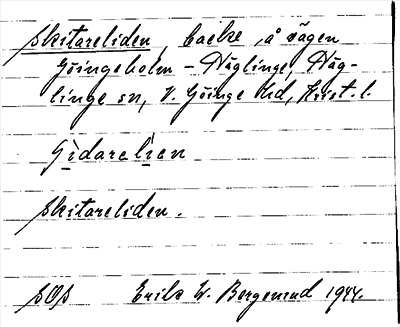 Skitareliden, backe å vägen
Göingeholm - Näglinge, Näg-
linge sn, V. Göinge hd, Krist. l.
Gidarelien
Skitareliden.
SOS Erik W. Bergemud 1944.